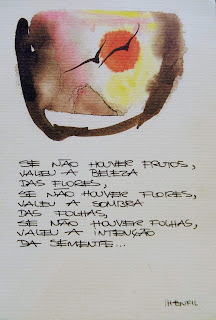 SE NÃO HOUVER FRUTOS,
VALEU A BELEZA
DAS FLORES,
SE NÃO HOUVER FLORES,
VALEU A SOMBRA
DAS FOLHAS,
SE NÃO HOUVER FOLHAS,
VALEU A INTENÇÃO
DA SEMENTE...
HENFIL